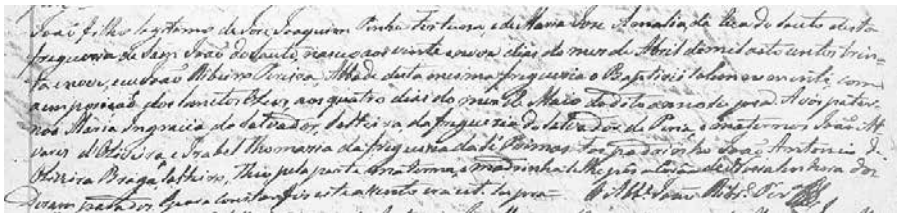 João filho legitimo de Jose Joaquim Pinho Fortuna, e de Maria Jose Amalia da do Souto desta
freguezia de Sam João do Souto, nasceo aos vinte e nove dias do mes de Abril de mil oito centos trin-
ta e nove, eu João Ribeiro Pereira, Abbade desta mesma freguezia o Baptizei solemnemente, com
a impozição dos Santos Oleos, aos quatro dias do mes de Maio do dito anno de Avós pater-
nos Maria Ingracia do Salvador, solteira, da freguezia do Salvador de e maternos João Al-
vares d'Oliveira, e Izabel Thomazia da freguezia de foi padrinho João Antonio de
Oliveira Braga, solteiro, Thio pela parte materna, e madrinha a de Nossa Senhora dos
para constar fiz este assento era ut supra— O Abb.e João Rib.ro Per.a